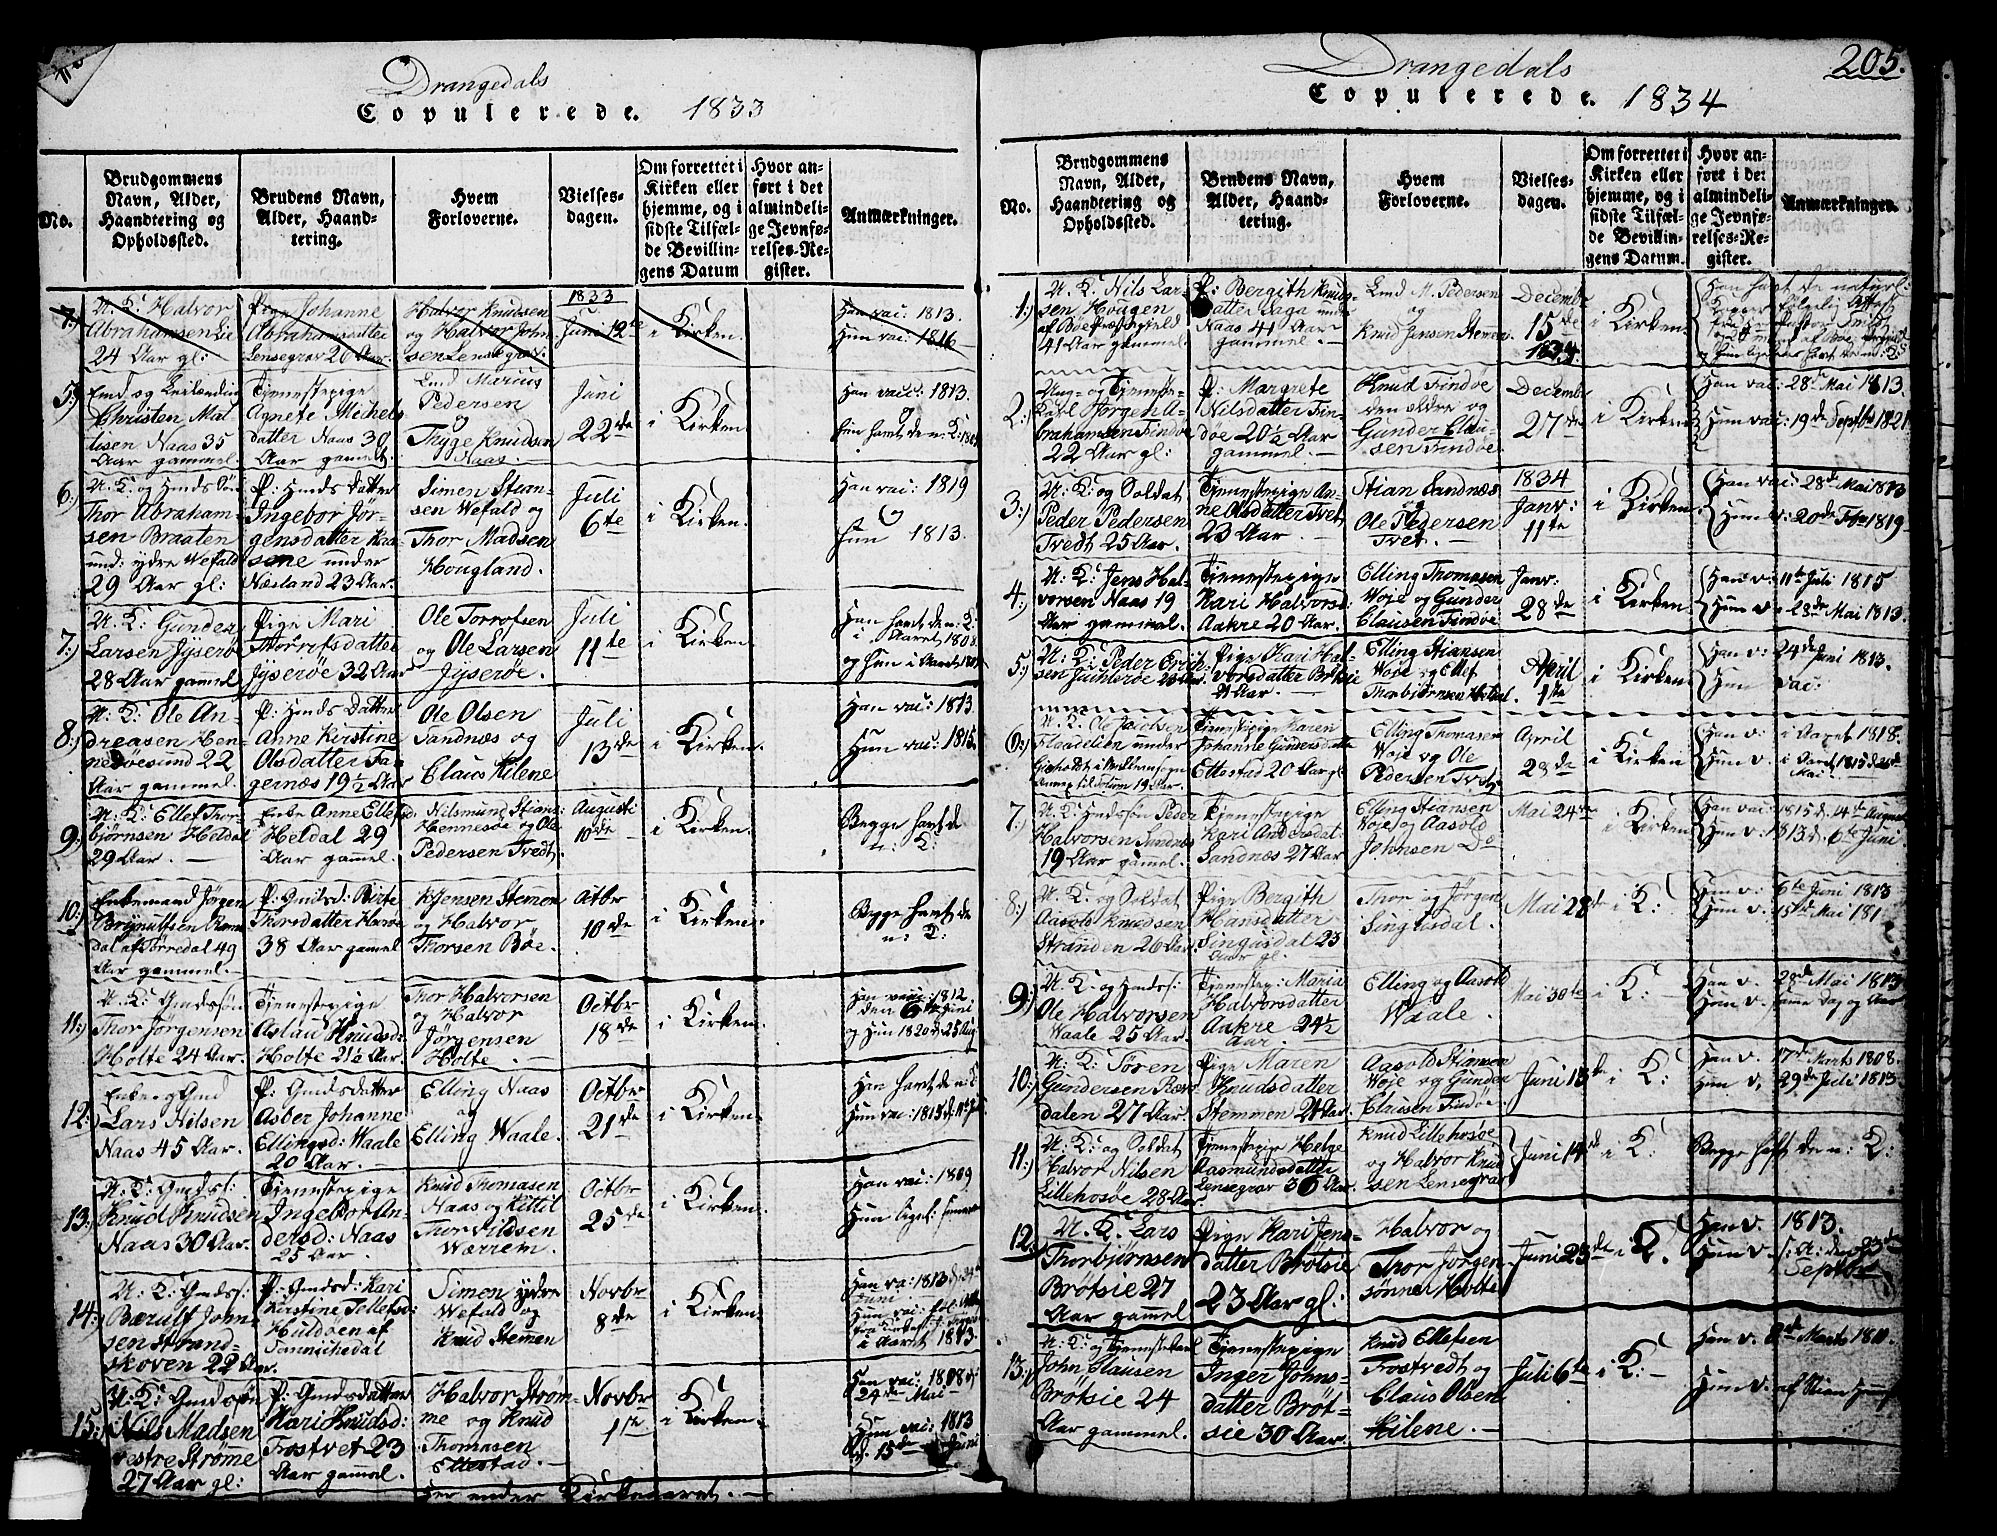 Drangedals
Copulerede. 1833
No.
Brudgommens Navn, Alder, Haandtering og Opholdssted.
Brudens Navn, Alder, Haandtering.
Hvem Forloverne.
Vielsesdagen.
Om forrettet i Kirken eller hjemme, og i sidste Tilfælde Bevillingens Datum
Hvor anført i det almindelige Jevnførelses-Register.
Anmærkninger.
7.)
U. K: Halvor
Abrahamsen Lie
24 Aar gl:
Pige Johanne
Abrahamsdatter
Lensegrav 26 Aar.
Halvor Knudsen
og Halvor John-
sen Lensegrav.
1833
Juni 12te
i Kirken.
Han vac: 1813.
Hun vac: 1816
5.)
Christen Mat
tisen Naas 35
Aar gammel.
Tjenestepige
Agnete Michels
datter Naas 30
Aar gammel.
Lmd Marius
Pedersen
og
Thyge Knudsen
Naas.
Juni
22de
i Kirken.
Han vac: 1813.
og
6.)
U. K. og Gmds Søn
Thor Abraham-
sen Braaten
und: ydre Wefald
29 Aar gl:
P: Gmds Datter
Ingebor Jør-
gensdatter
under
Næsland 23 Aar.
Simen Stian-
sen Wefald og
Thor Madsen
Hougland.
Juli
6te
i Kirken.
Han vac: 1819
og
Hun 1813.
7.)
U. K: Gunder
Larsen Jyserö
28 Aar gammel
Pige Mari
Thorrofsdatter
Jyseröe 32 Aar
Ole Torrofsen
og Ole Larsen
Jyseröe.
Juli
11te
i Kirken.
Han havt de n: K.
i Aaret 1808
og Hun i Aaret
8.)
U. K: Ole An-
dreasen Hen-
nesöesund 22
Aar gammel.
P: Gmds Datter
Anne Kirstine
Olsdatter Fa-
gernæs 19½ Aar
Ole Olsen
Sandnæs og
Claus Kilene
Juli
13de
i Kirken.
Han vac: 1813
Hun vac: 1815.
9.)
U. K: Ellef Thor-
bjørnsen Heldal
29 Aar.
Enke Anne Ellefsd:
Heldal 29
Aar gammel.
Nilsmund Stians:
Hennesöe og Ole
Pedersen Tvedt.
Augusti
10de
i Kirken.
Begge havt de
n: K:
10.)
Enkemand Jørgen
Brynulfsen
dal af Tørredal 49
Aar gammel.
P: Gmds: Birte
Thorsdatter
38 Aar gammel
K Jensen Stemen
og Halvor
Thorsen Böe.
Octbr
10de
i Kirken.
Begge havt de
n: K:
11.)
U. K: Gmdssøn
Thor Jørgensen
Holte 24 Aar.
Tjenestepige
Aslau Knudsd:
Holte 21½ Aar.
Thor Halvorsen
og Halvor
Jørgensen
Holte.
Octbr
18de
i Kirken.
Han vac: 1812
den 6te Juni
og Hun 1820 d: 25 Aug
12.)
Enke og Gmd
Lars Nilsen
Naas 45 Aar.
P: Gmdsdatter
Asber Johanne
Ellingsd: Waale
20 Aar.
Elling Naas
og
Elling Waale.
Octbr
21de
i Kirken.
Han havt de n: K
Hun vac: 1815
13.)
U. K: Gmds:
Knud Knudsen
Naas 30 Aar.
Tjenestepige
Ingebor An-
dersd: Naas
25 Aar.
Knud Thomasen
Naas og Kittil
Thorkildsen
Wærrem.
Octbr
25de
i Kirken.
Han vac: 1809
14.)
U. K: Gmds:
Bærulf John-
sen Strand-
skoven 22 Aar.
P: Gmdsd: Kari
Kirstine Tellefsd:
Huldöen af
Sannichedal
Simen ydre
Wefald og
Knud Stemen
Novbr
8de
i Kirken.
Han vac: 1813
i Aaret 1813
15.)
U. K: Gmdssøn
Nils Madsen
vestre Strömme
27 Aar gl:
P: Gmdsdatter
Kari Knudsd:
Frostvet 23
Aar gammel.
Halvor Ström-
me og Knud
Thomasen
Ettestad.
Novbr
1ste
i Kirken
Han vac: 1808
24de Mai
Hun vac: 1813
d. 15de Juni
Her ender Kirkeaaret.
205.
Drangedals
Copulerede. 1834
No.
Brudgommens Navn, Alder, Haandtering og Opholdssted.
Brudens Navn, Alder, Haandtering.
Hvem Forloverne.
Vielsesdagen.
Om forrettet i Kirken eller hjemme, og i sidste Tilfælde Bevillingens Datum.
Hvor anført i det almindelige Jevnførelses-Register.
Anmærkninger.
1.)
U. K. Nils Lar-
sen Hougen
af Böe Præstegield
41 Aar gammel.
P: Bergith Knuds-
datter Saga under
Naas 41 Aar
gammel.
Lmd M. Pedersen
og
Knud Jensen Stemen
Decembr
15de
i Kirken.
2.)
Ung- og Tjeneste-
karl Jørgen A-
brahamsen Findöe
22 Aar gl:
P: Margrete
Nilsdatter Fin-
döe 20½ Aar
gammel.
Knud Findöe
den ældre og
Gunder Clau-
sen Findöe
Decembr
27de
i Kirken
Han vac: 28de Mai 1813.
Hun vac: 19de Septbr 1821
3.)
U. K: og Soldat
Peder Pedersen
Tvedt 25 Aar.
Tjenestepige An-
ne Olsdatter Tvet
23 Aar.
Stian Sandnæs
og
Ole Pedersen
Tvet.
1834
Janv:
11te
i Kirken.
Han vac: 28de Mai 1813
Hun v: 20de Fbr 1819
4.)
U. K: Jens Hal-
vorsen Naas 19
Aar gammel.
Tjenestepige
Kari Halvorsd:
Aakre 20 Aar.
Elling Thomasen
Woje og Gunder
Clausen Findöe
Janv:
28de
i Kirken.
Han v: 11te Juli 1815
Hun v: 28de Mai 1813.
5.)
U. K: Peder Erich-
sen
Pige Kari Hal-
vorsdatter Brötsie
21 Aar.
Elling Stiansen
Woje og Ellef
Thorbiørnsen Heldal.
April
1ste
i Kirken.
Han v: 24de Juni 1813.
Hun vac:
6.)
U. K. Ole Jacobsen
under
19 Aar.
Tjenestepige Karen
Johanne Gundersdatter
Ettestad 20 Aar gl
Elling Thomasen
Woje og Ole
Pedersen Tvet
April
28de
i Kirken
Han v: i Aaret 1818.
Hun v: i Aaret 1815
Mai
7.)
U. K: Gmdssøn Peder
Halvorsen Sandnæs
19 Aar gammel.
Tjenestepige
Kari Andersdat:
Sandnæs 27 Aar
Elling Stiansen
Woje og Aasold
Johnsen Do
Mai 24de
i Kirken
Han vac: 1815 d. 14de August
Hun v: 1813 d. 6te Juni
8.)
U. K: og Soldat
Aasold Knudsen
Stranden 26 Aar
Pige Bergith
Hansdatter
Singusdal 23
Aar gl:
Thor og Jørgen
Singusdal.
Mai 28de
i K:
Hun v. 6te Juni 1813
Hun v. 15de Mai 181
9.)
U. K: og Gmdss:
Ole Halvorsen
Waale 25 Aar.
Tjenestep: Maria
Halvorsdatter
Aakre 24½
Aar
Elling og Aasold
Waale.
Mai 30te
i K:
Han v. 28de Mai 1813
Hun v. samme Dag og Aar
10.)
U. K: Sören
Gundersen Ræv-
dalen 27 Aar
Pige Maren
Knudsdatter
Stemmen 21 Aar.
Aasold Stiansen
Woje og Gunder
Clausen Findöe.
Juni 13de
i K:
Han v. 17de Marts 1808.
Hun v. 29de Juli 1813
11.)
U. K: og Soldat
Halvor Nilsen
Lillehosöe 28 Aar
Tjenestepige Helge
Aasmundsdatter
Lensegrav 36 Aar.
Knud Lillehosöe
og Halvor Knud
sen Lensegrav
Juni 14de
i K:
Begge haft de n: K:
12.)
U. K. Lars
Thorbjørnsen
Brötsie 27
Aar gammel
Pige Kari Jens-
datter Brötsie
23 Aar gl:
Halvor og
Thor Jørgen
sönner Holte
Juni 23de
i K.
Han v. 1813.
Hun v. s: A: den 23de
Septbr
13.)
U. K: og Tjenestekarl
John Clausen
Brötsie 24
Aar gammel.
Tjenestepige
Inger Johns-
datter Bröt-
sie 30 Aar.
Knud Ellefsen
Frostvedt og
Claus Olsen
Kilene.
Juli 6te
i K:
Han v. 2de Marts 1811.
Hun v.